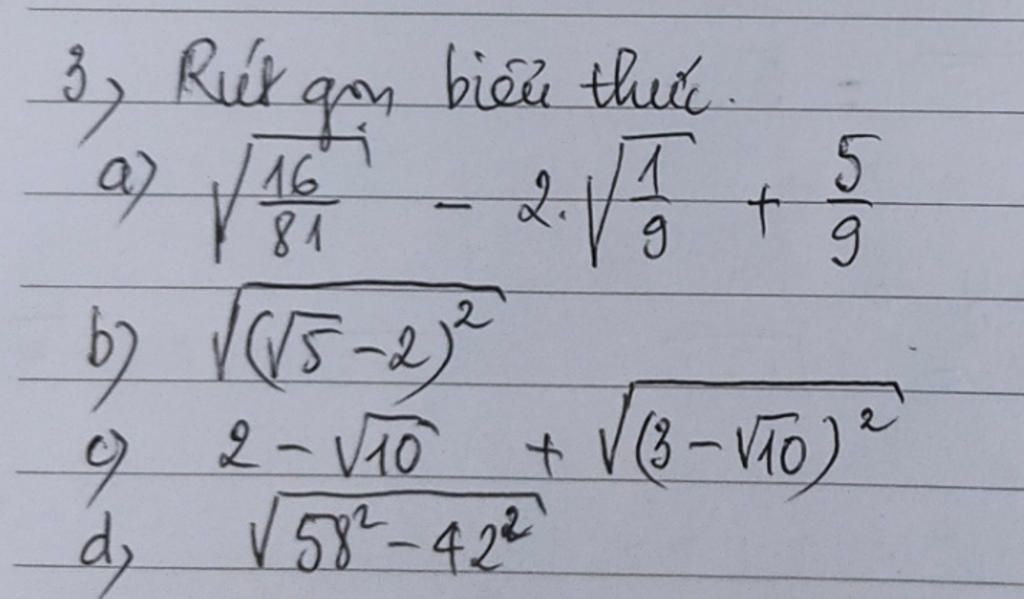 3, Rút gọn biểu thức.
a) √(16/81) - 2.√(1/9) + 5/9
b) √((√5 - 2)²)
c) 2 - √10 + √((3 - √10)²)
d, √(58² - 42²)